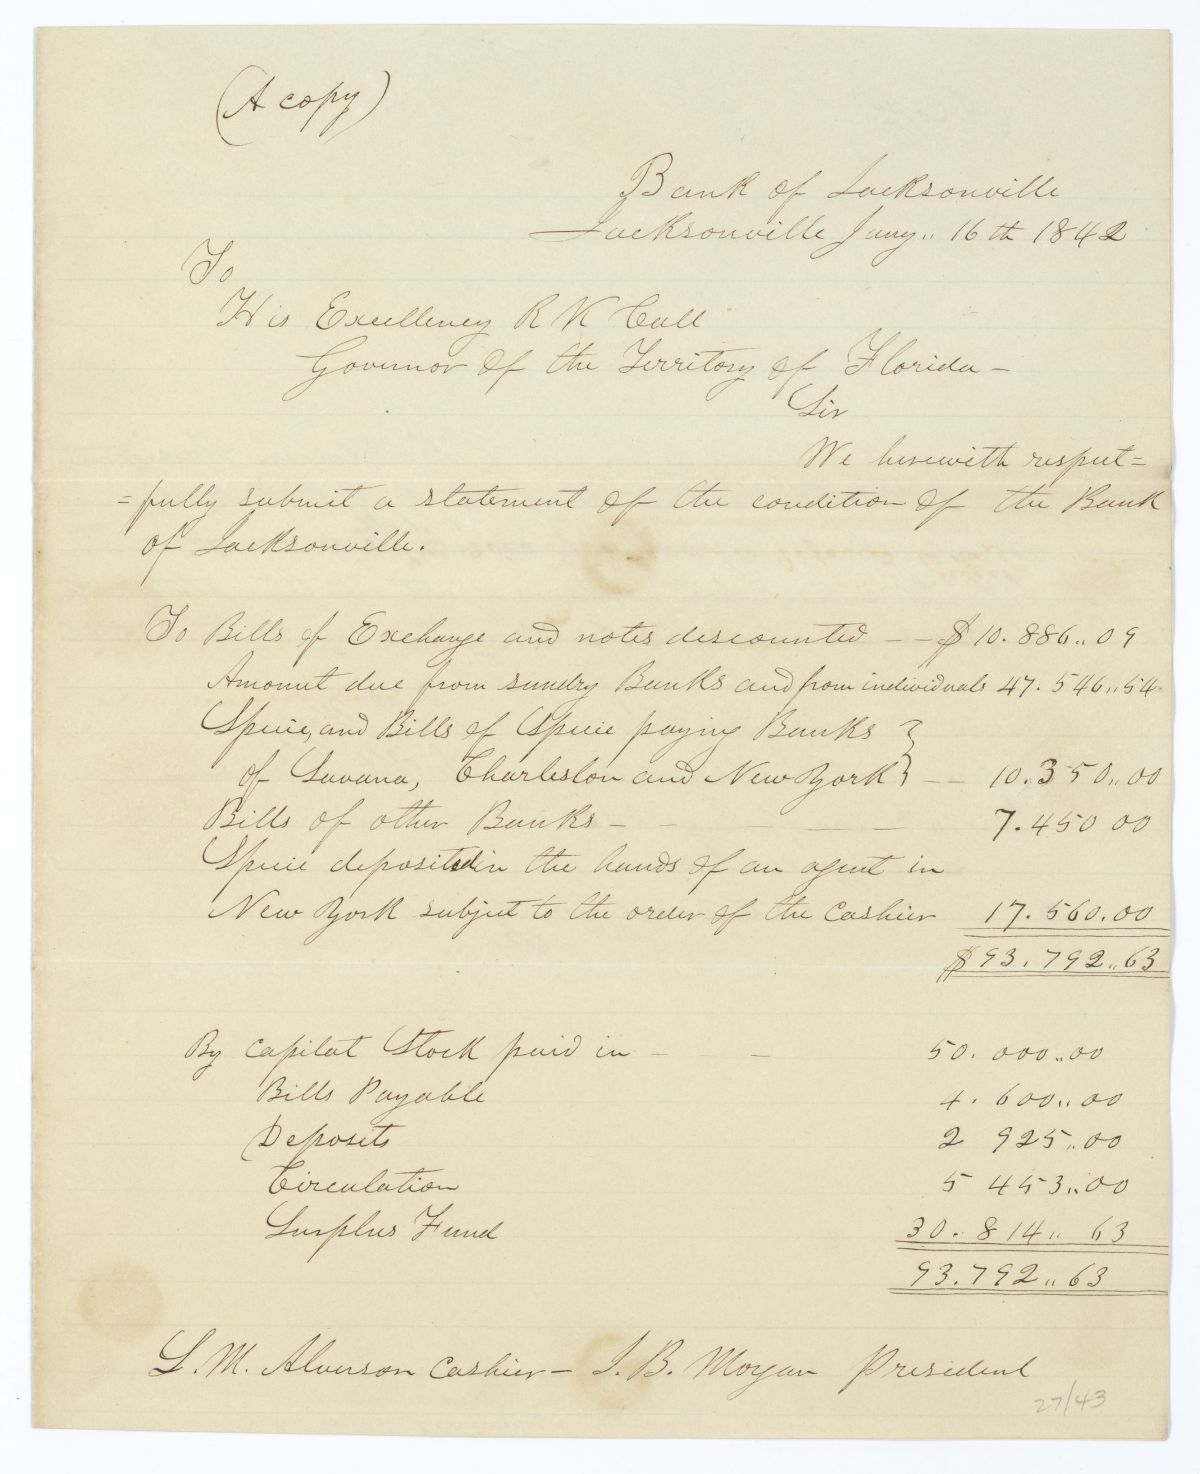 (A copy)
Bank of Jacksonville
Jacksonville Jany.. 16 th 1842
To
His Excellency R K Call
Governor of the Territory of Florida –
Sir
We herewith respect=
=fully submit a statement of the condition of the Bank
of Jacksonville.
To Bills of Exchange and notes discounted – – $ 10. 886.. 09
Amount due from sundry Banks and from individuals 47. 546.. 54
Specie, and Bills of Specie paying Banks }
of Savana, Charleston and New York } – – 10. 350.. 00
Bills of other Banks – – – – 7. 450 00
Specie deposited in the hands of an agent in
New York subject to the order of the Cashier 17. 560. 00
$ 93. 792.. 63
By Capital Stock paid in – – 50. 000.. 00
Bills Payable 4. 600.. 00
Deposits 2 925.. 00
Circulation 5 453.. 00
Surplus Fund 30. 814.. 63
93. 792.. 63
L. M. Alverson Cashier – I. B. Morgan President
27/43